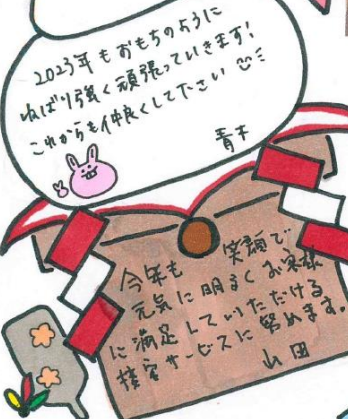 2023年もおもちのように
ねばり強く頑張っていきます!
これからも仲良くしてください
青木
今年も 笑顔で
元気に明るくお客様
に満足していただける
接客サービスに努めます。
山田